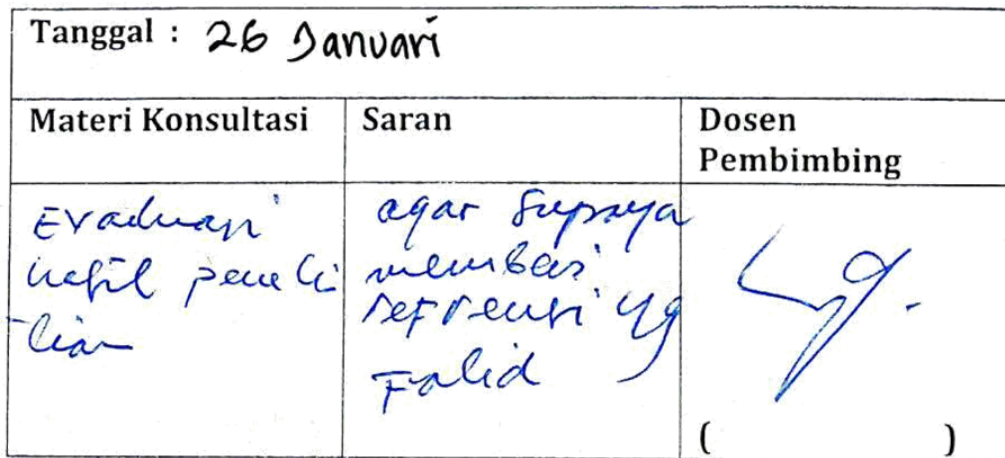 Tanggal : 26 Januari
Materi Konsultasi
Saran
Dosen
Pembimbing
Evaluasi
hasil peneli
-tian
agar supaya
memberi
refrensi yg
Falid
( )